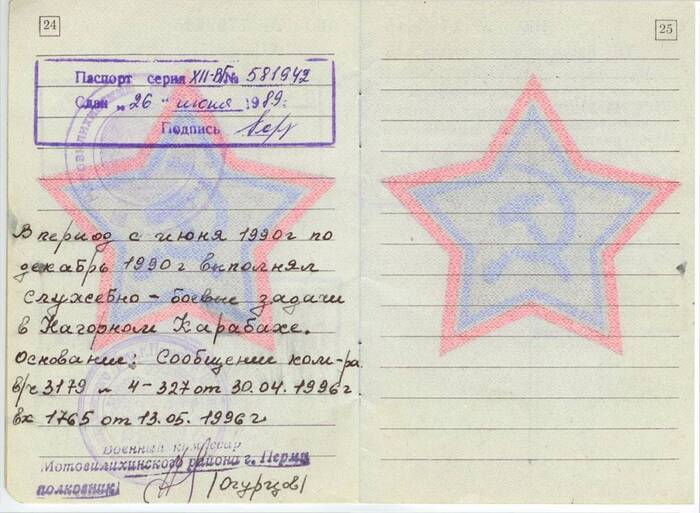 24
25
Паспорт серия XII-ВГ № 581942
Сдан „26" июня 1989г.
Подпись
В период с июня 1990г по
декабрь 1990г выполнял
служебно-боевые задачи
в Нагорном Карабахе.
Основание: Сообщение ком-ра
в/ч 3179 4-327 от 30.04.1996г.
вх 1765 от 13.05.1996г
Военный комиссар
Мотовилихинского района г. Перми
полковник (Огурцов)